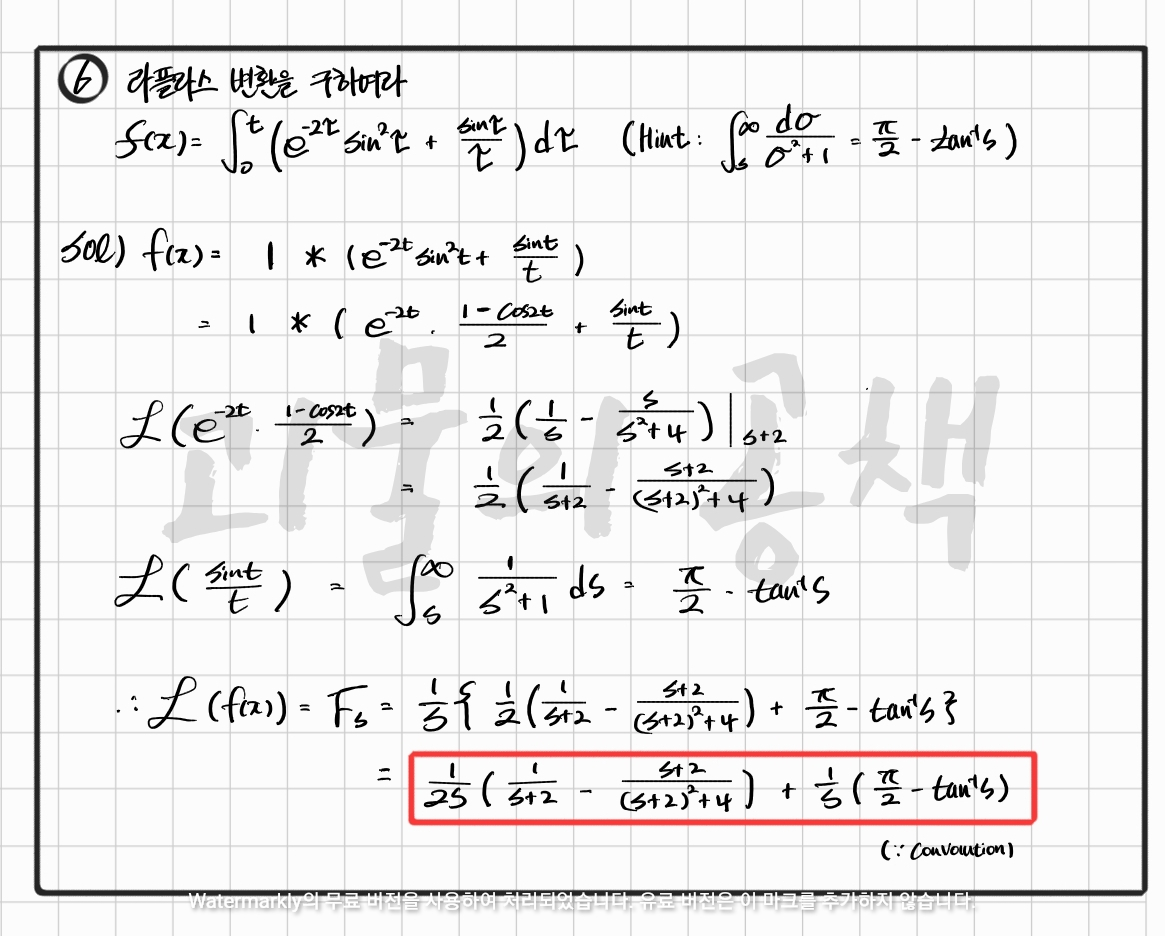 ⑥ 라플라스 변환을 구하여라
f(x)= ∫₀ᵗ (e^{-2τ} sin²τ + sinτ/τ) dτ (Hint: ∫ₛ^∞ dσ/(σ²+1) = π/2 - tan⁻¹s)
sol) f(x)= 1 * (e^{-2t} sin²t + sint/t)
= 1 * (e^{-2t} · (1-cos2t)/2 + sint/t)
ℒ(e^{-2t} · (1-cos2t)/2) = 1/2 (1/s - s/(s²+4)) |_{s+2}
= 1/2 (1/(s+2) - (s+2)/((s+2)²+4))
ℒ(sint/t) = ∫ₛ^∞ 1/(s²+1) ds = π/2 - tan⁻¹s
∴ ℒ(f(x)) = Fs = 1/s { 1/2 (1/(s+2) - (s+2)/((s+2)²+4)) + π/2 - tan⁻¹s }
= 1/2s (1/(s+2) - (s+2)/((s+2)²+4)) + 1/s (π/2 - tan⁻¹s)
(∵ Convolution)
괴물의 공책
Watermarkly의 무료 버전을 사용하여 처리되었습니다. 유료 버전은 이 마크를 추가하지 않습니다.